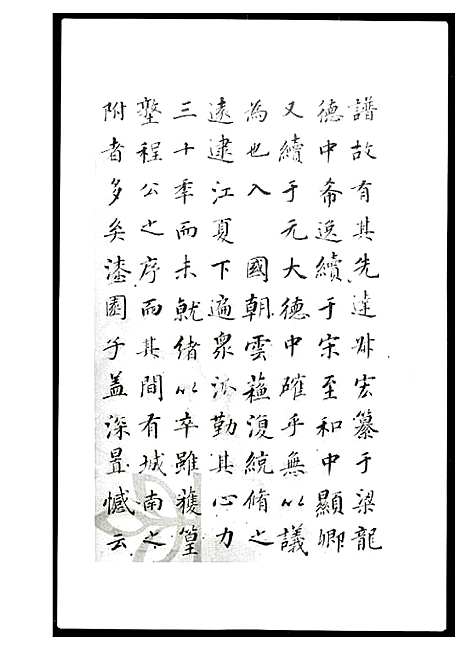 譜故有其先達叔宏纂于梁龍
德中希逸續于宋至和中顯卿
又續于元大德中確乎無以議
為也入　國朝雲蘓復統脩之
遠逮江夏下遍衆派勤其心力
三十季而未就緒以卒雖蒦篁
墪程公之序而其間有城南之
附者多矣漆園子盖深㫷憾云